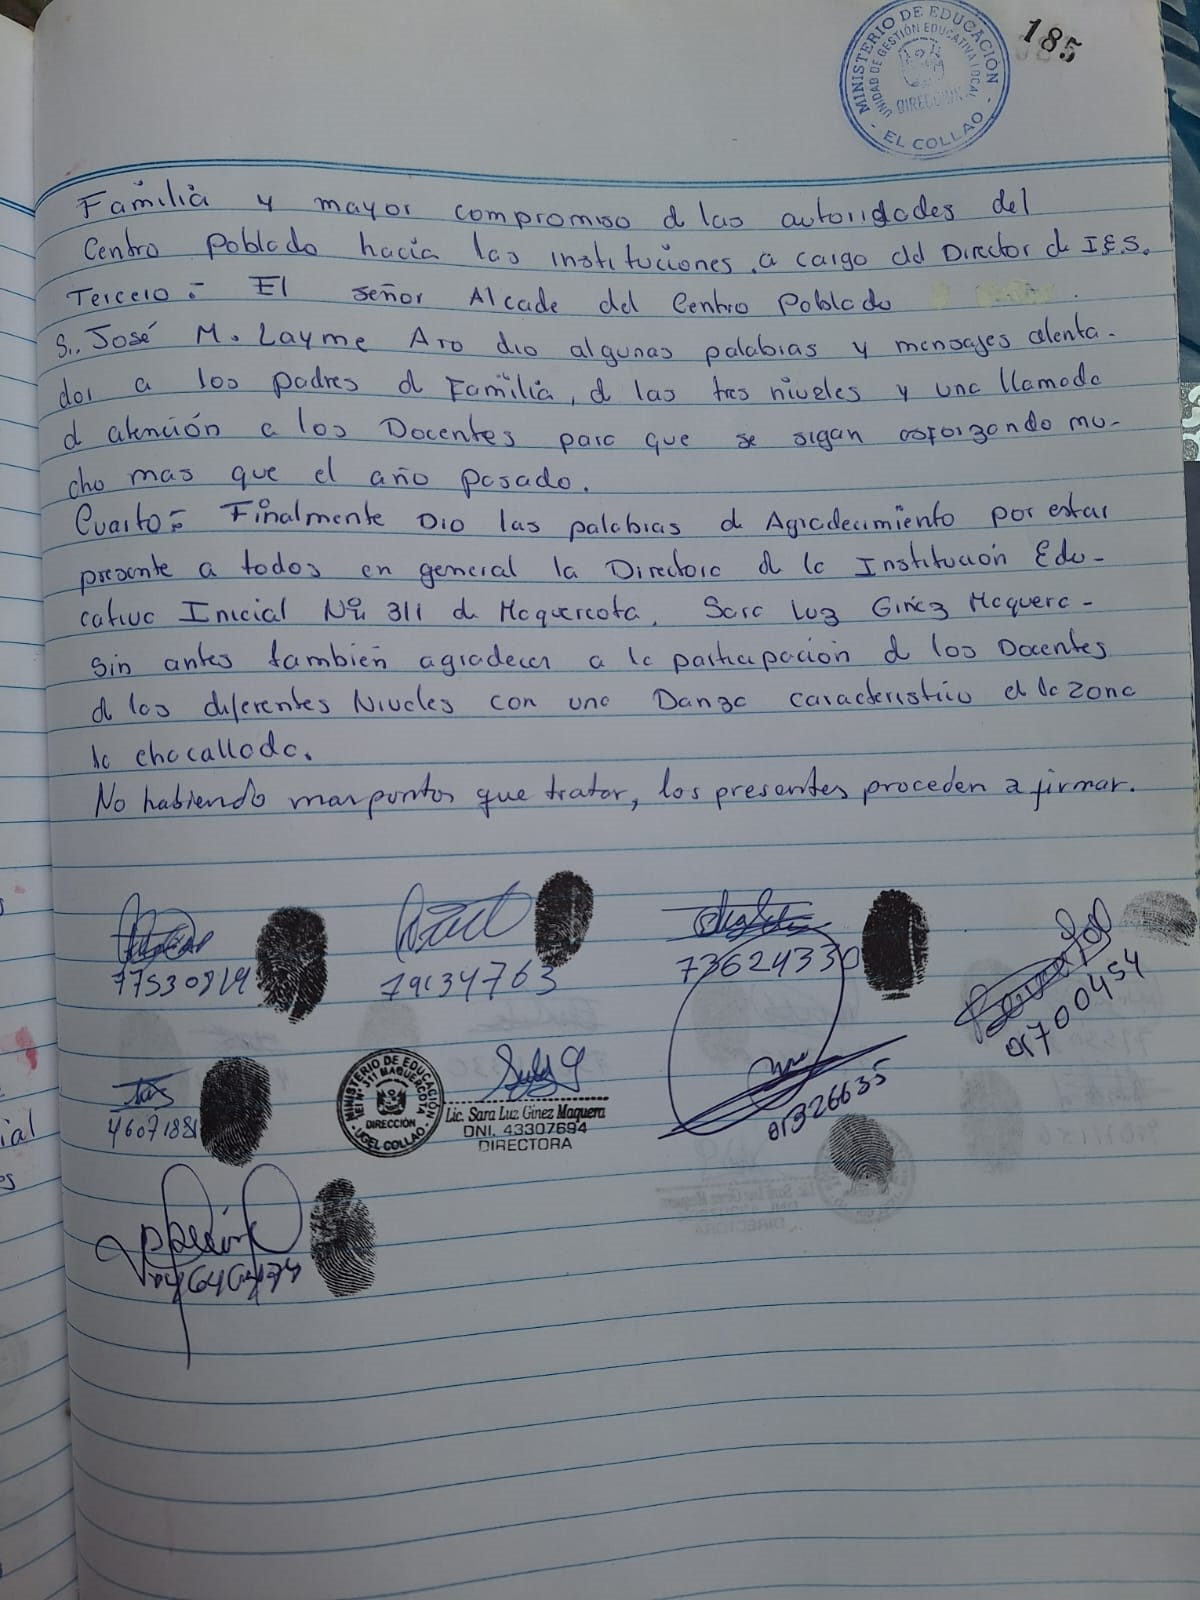 MINISTERIO DE EDUCACIÓN
UNIDAD DE GESTIÓN EDUCATIVA LOCAL
DIRECCIÓN
- EL COLLAO -
185
Familia y mayor compromiso d las autoridades del
Centro Poblado hacia las instituciones. a cargo dld Director de I.E.S.
Tercero:- El señor Alcade del Centro Poblado
S.. José M. Layme Aro dio algunas palabras y mensajes alenta-
dor a los padres d Familia, d las tres niveles y una llamada
d atención a los Docentes para que se sigan esforzando mu-
cho mas que el año pasado.
Cuarto:- Finalmente Dio las palabras d Agradecimiento por estar
presente a todos en general la Directora d la Institución Edu-
cativa Inicial Nº 311 de Maquercota, Sara Luz Giñez Maquera -
Sin antes también agradecer a la participación d los Docentes
d los diferentes Niveles con una Danza caracteristico d la zona
la chacallada.
No habiendo mas puntos que tratar, los presentes proceden a firmar.
73624330
01700454
MINISTERIO DE EDUCACIÓN
IEI Nº 311 MAQUERCOTA
DIRECCIÓN
- UGEL COLLAO -
Lic. Sara Luz Ginez Maquera
DNI. 43307694
DIRECTORA
01326635